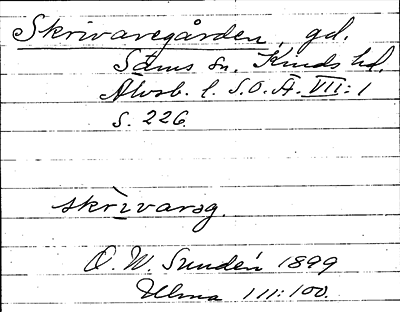 Skrivaregården, gd.
Säms sn. Kinds hd.
Älvsb. l. S.O.Ä. VII:1
S. 226.
skrìvarsg.
O. W. Sundén 1899
Ulma 111:100.